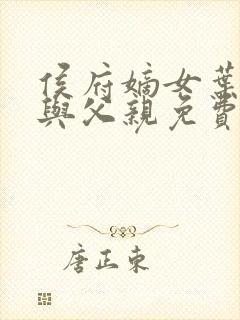 侯府嫡女葉
與父親免費
唐正東